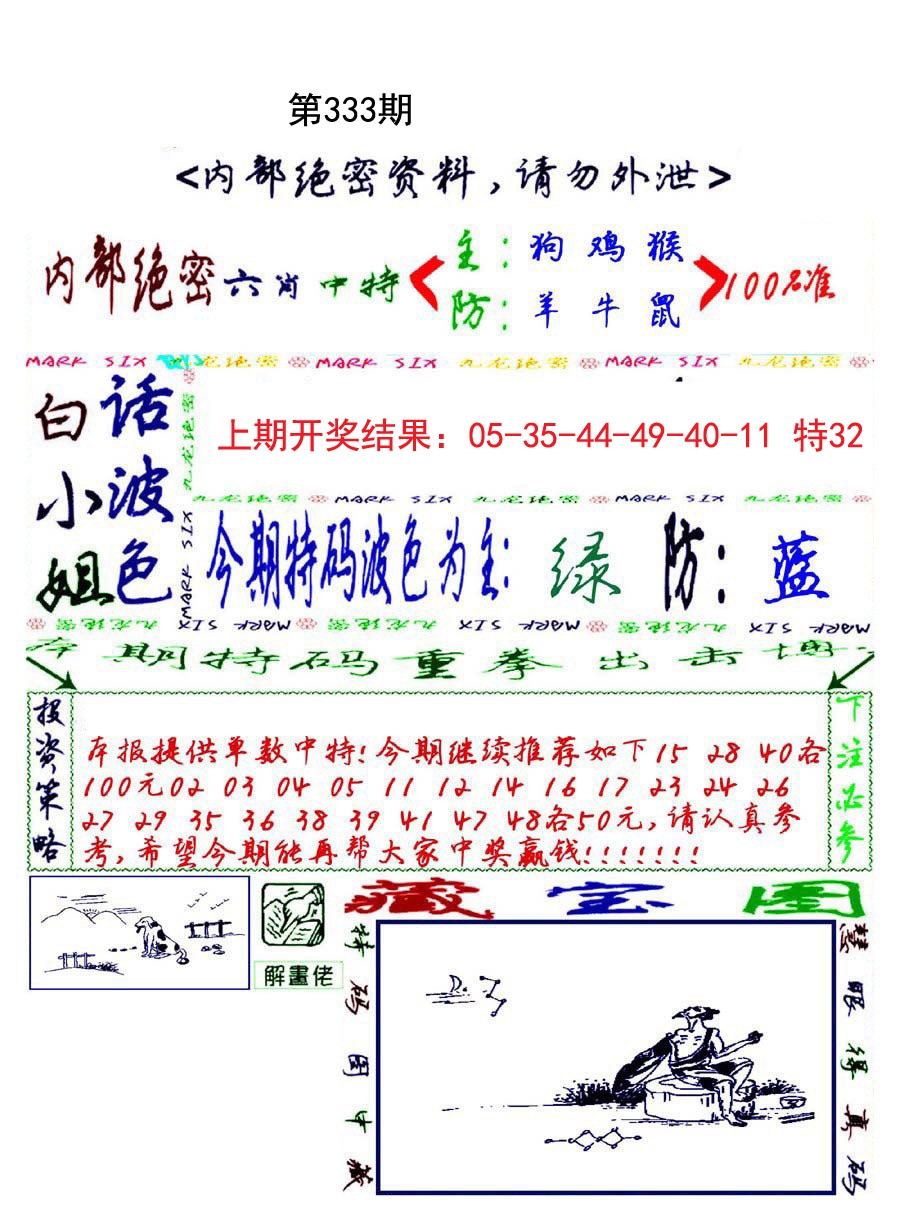 第333期
<内部绝密资料,请勿外泄>
内部绝密六肖中特
主:狗鸡猴
防:羊牛鼠
100名准
MARK SIX 九龙绝密 MARK SIX 九龙绝密 MARK SIX 九龙绝密
白话
小波
姐色
九龙绝密 MARK SIX
上期开奖结果：05-35-44-49-40-11 特32
九龙绝密 MARK SIX 九龙绝密 MARK SIX 九龙绝密
今期特码波色为主:绿 防:蓝
九龙绝密 MARK SIX 九龙绝密 MARK SIX 九龙绝密 MARK SIX
本期特码重拳出击博
投资策略
本报提供单数中特!今期继续推荐如下15 28 40各
100元02 03 04 05 11 12 14 16 17 23 24 26
27 29 35 36 38 39 41 47 48各50元,请认真参
考,希望今期能再帮大家中奖赢钱!!!!!!!
下注必参
解畫佬
藏宝图
特码图中藏
慧眼得真码